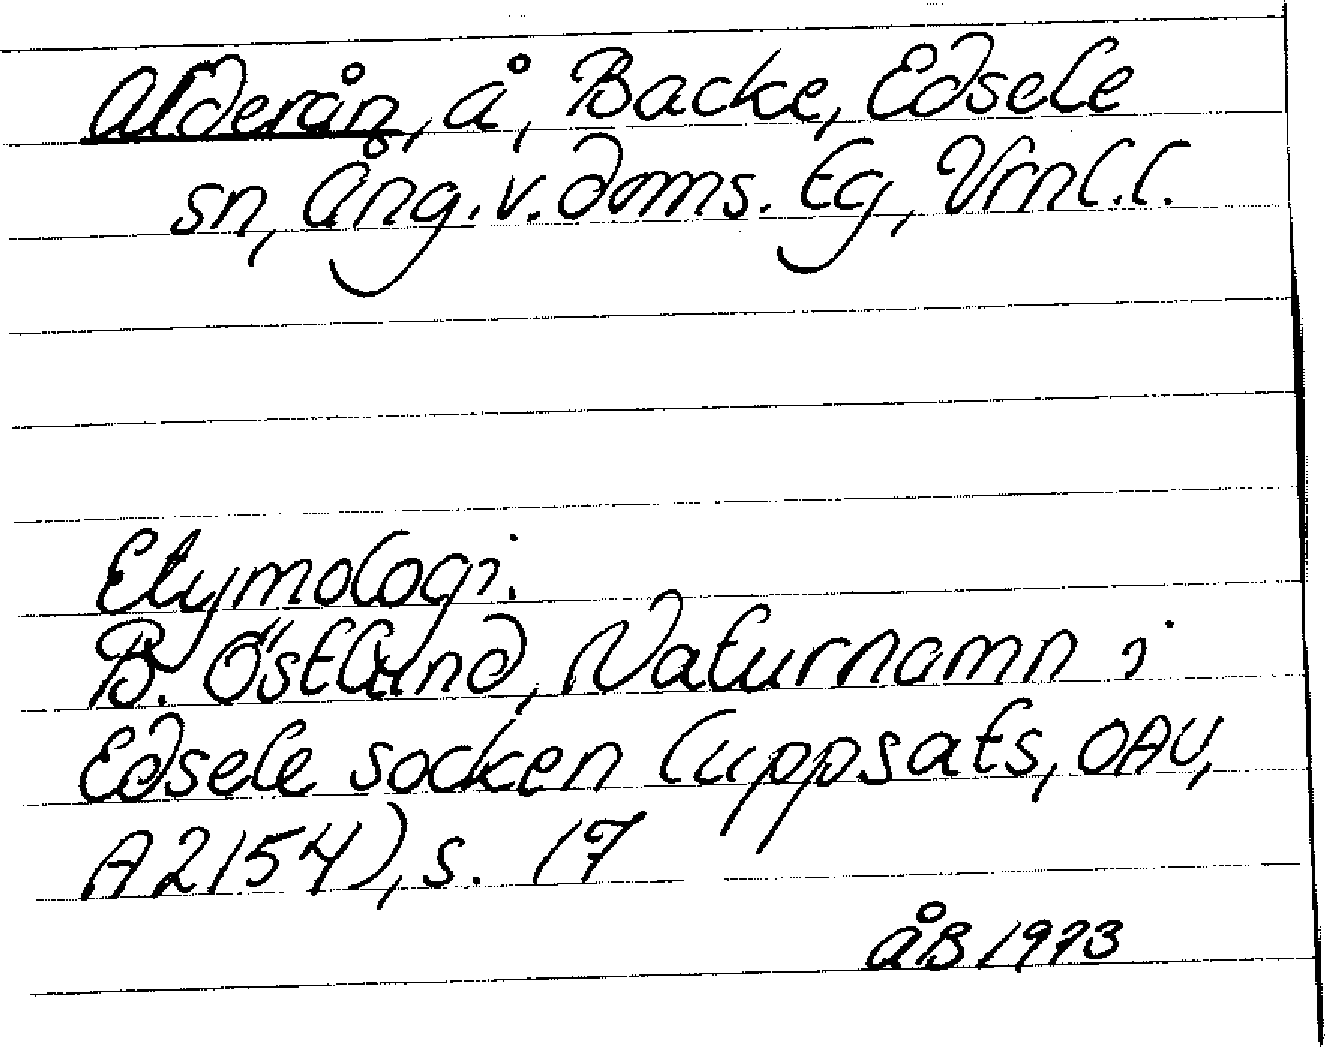 Alderån, å, Backe, Edsele
sn, Ång. v. doms. tg, Vrnl. l.
Etymologi.
B. Östlund, Naturnamn i
Edsele socken (uppsats, OAU,
A2154), s. 17
ÅB 1973